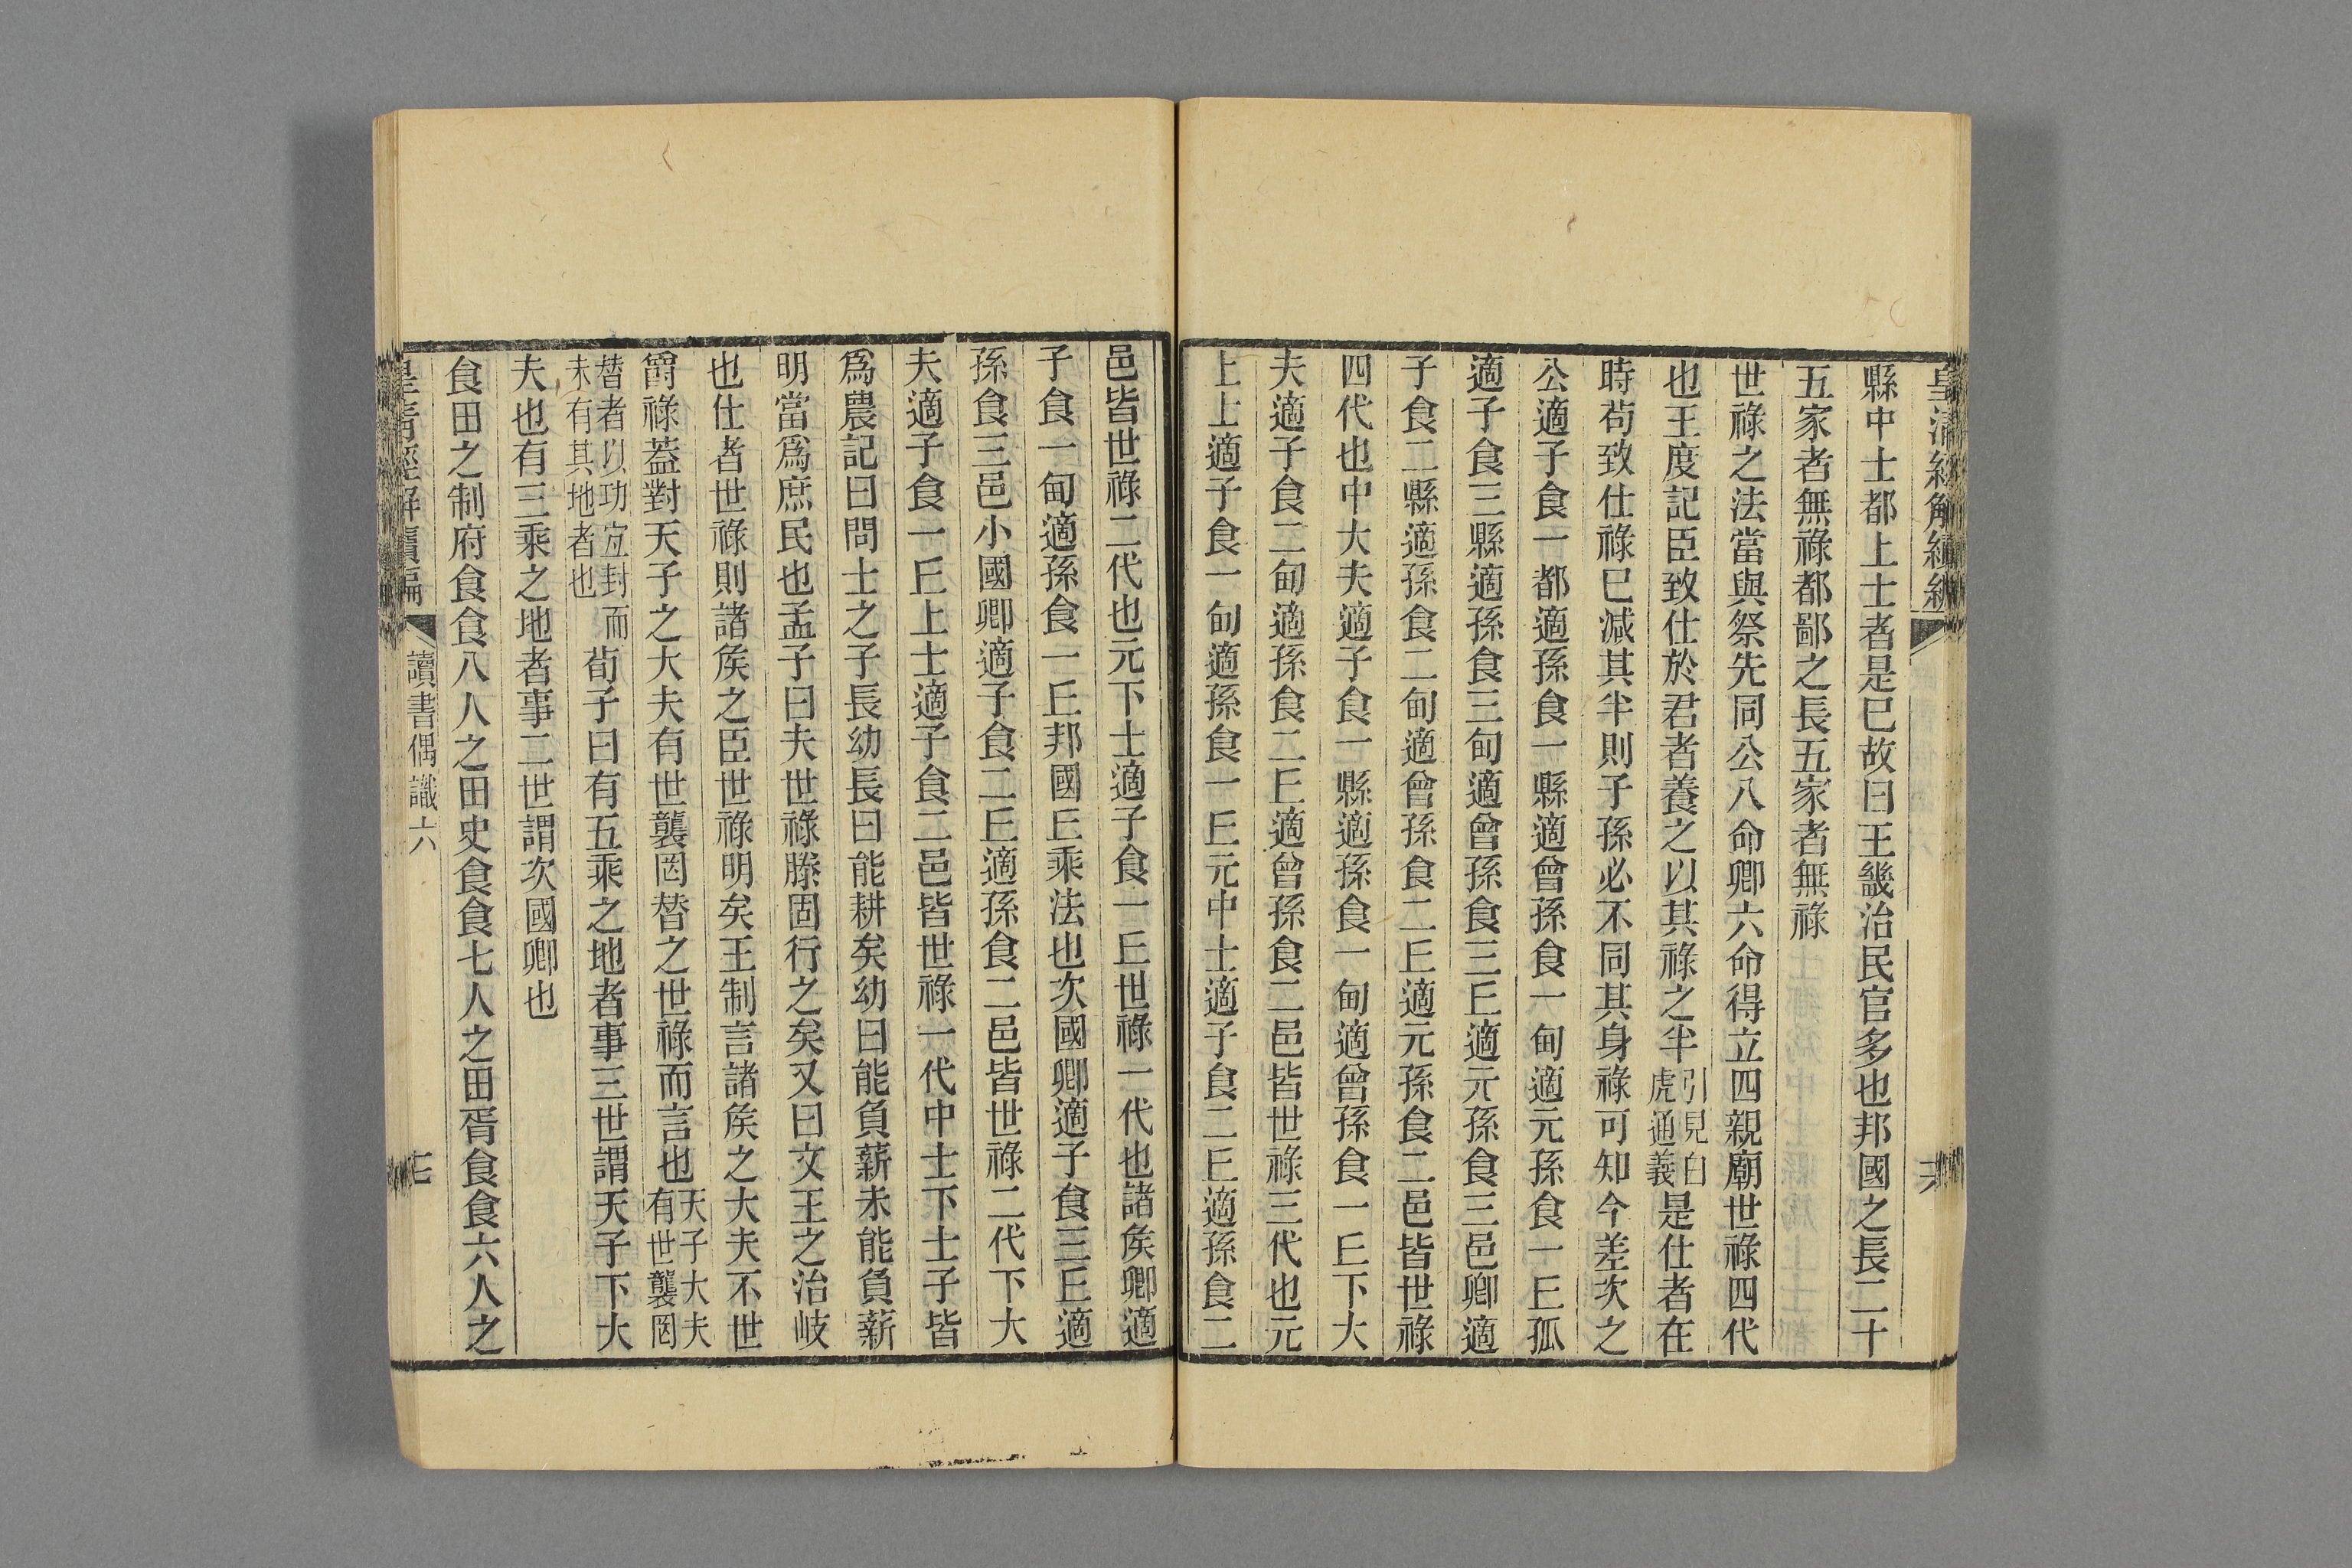 皇清經解續編
縣中士都上士者是巳故曰王畿治民官多也邦國之長二十
五家者無祿都鄙之長五家者無祿
世祿之法當與祭先同公八命卿六命得立四親廟世祿四代
也王度記臣致仕於君者養之以其祿之半引見白虎通義是仕者在
時苟致仕祿巳減其半則子孫必不同其身祿可知今差次之
公適子食一都適孫食一縣適曾孫食一甸適元孫食一𠀉孤
適子食三縣適孫食三甸適曾孫食三𠀉適元孫食三邑卿適
子食二縣適孫食二甸適曾孫食二𠀉適元孫食二邑皆世祿
四代也中大夫適子食一縣適孫食一甸適曾孫食一𠀉下大
夫適子食二甸適孫食二𠀉適曾孫食二邑皆世祿三代也元
上士適子食一甸適孫食一𠀉元中士適子食二𠀉適孫食二
邑皆世祿二代也元下士適子食一𠀉世祿一代也諸矦卿適
子食一甸適孫食一𠀉邦國𠀉乘法也次國卿適子食三𠀉適
孫食三邑小國卿適子食二𠀉適孫食二邑皆世祿二代下大
夫適子食一𠀉上士適子食二邑皆世祿一代中士下士子皆
爲農記曰問士之子長幼長曰能耕矣幼曰能負薪未能負薪
明當爲庶民也孟子曰夫世祿滕固行之矣又曰文王之治岐
也仕者世祿則諸矦之臣世祿明矣王制言諸矦之大夫不世
爵祿蓋對天子之大夫有世襲罔替之世祿而言也天子大夫有世襲罔
替者以功宐封而未有其地者也荀子曰有五乘之地者事三世謂天子下大
夫也有三乘之地者事二世謂次國卿也
食田之制府食食八人之田史食食七人之田胥食食六人之
皇清經解續編
讀書偶識六